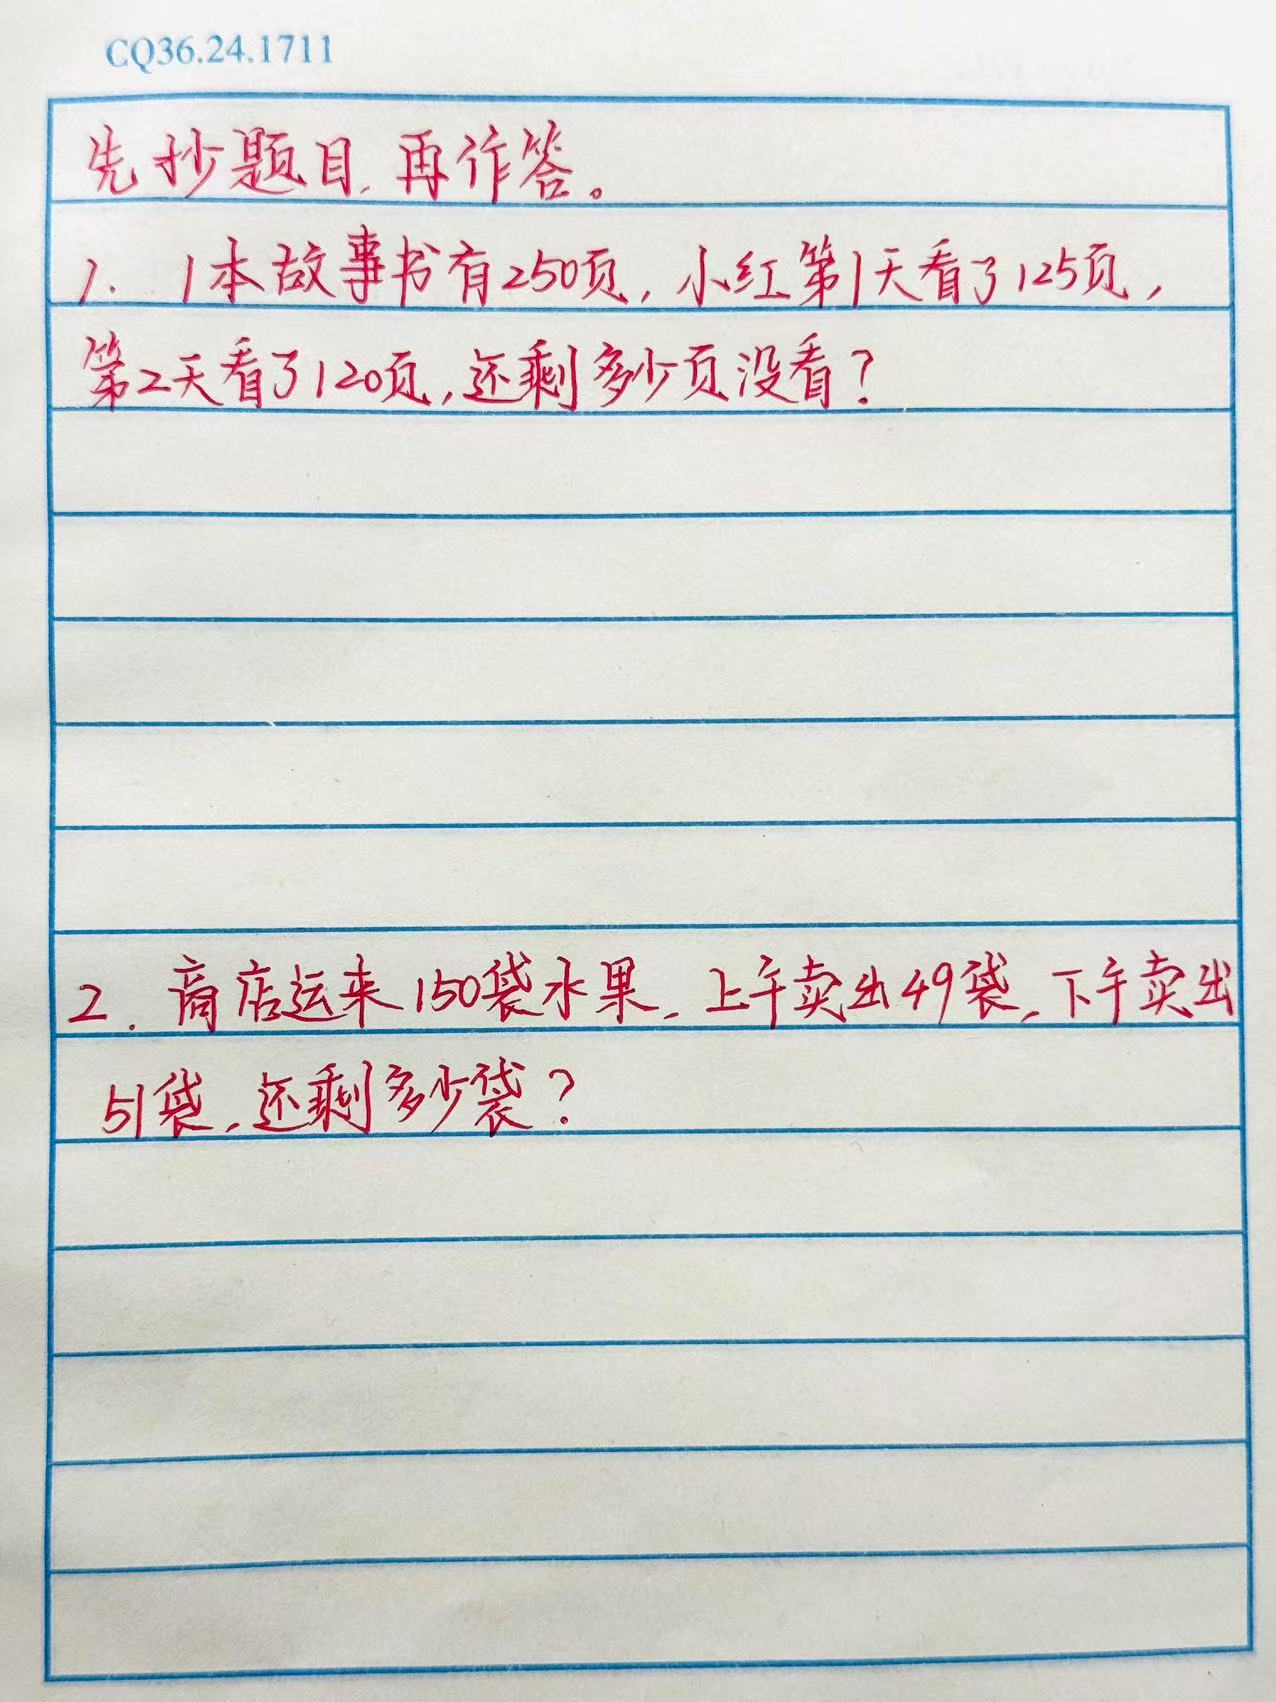 CQ36.24.1711
先抄题目,再作答。
1. 1本故事书有250页,小红第1天看了125页,
第2天看了120页,还剩多少页没看?
2. 商店运来150袋水果,上午卖出49袋,下午卖出
51袋,还剩多少袋?